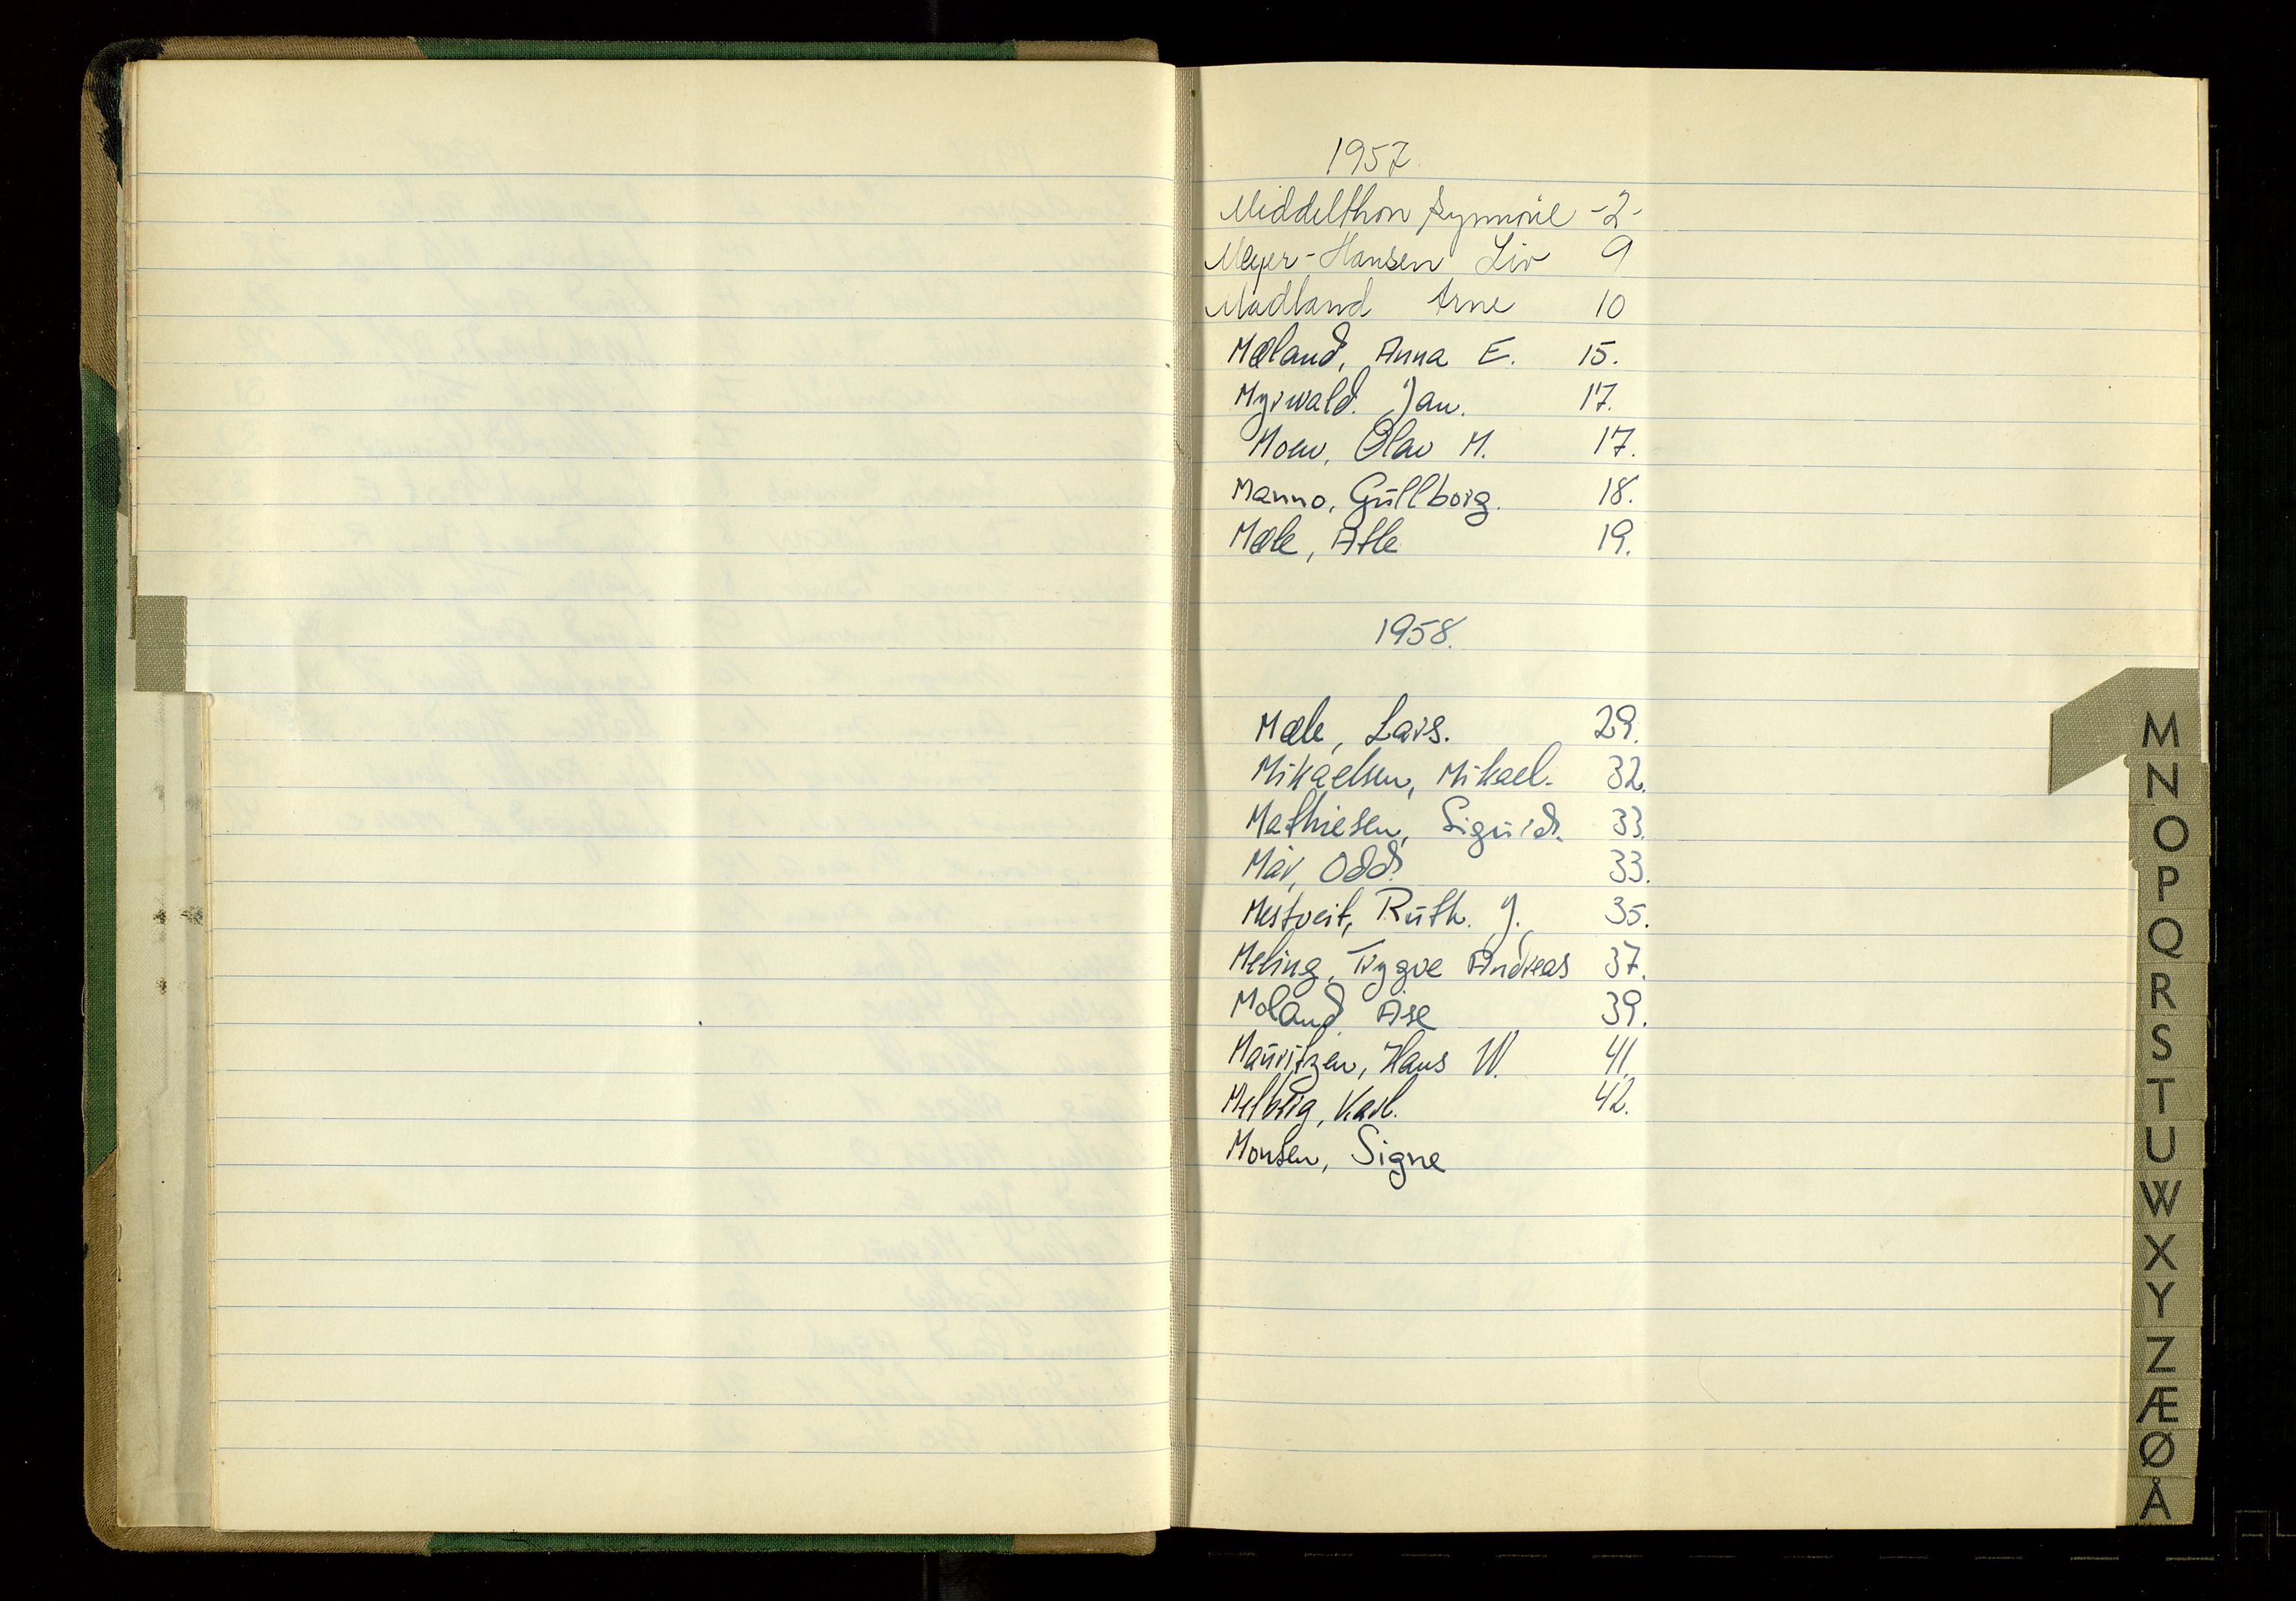 1957.
Middelthon Synnöve -2-
Meyer-Hansen Liv 9
Madland Arne 10
Mæland, Anna E. 15.
Myrwald. Jan. 17.
Moen, Olav M. 17.
Manno, Gullborg. 18.
Mæle, Atle 19.
1958.
Mæle, Lars. 29.
Mikaelsen, Mikael. 32.
Mathiesen, Sigurd. 33.
Mår, Odd. 33.
Mestveit, Ruth. J. 35.
Meling, Trygve Andreas 37.
Moland Åse 39.
Mauritzen, Hans W. 41.
Melberg, Karl. 42.
Monsen, Signe
M
N
O
P
Q
R
S
T
U
W
X
Y
Z
Æ
Ø
Å